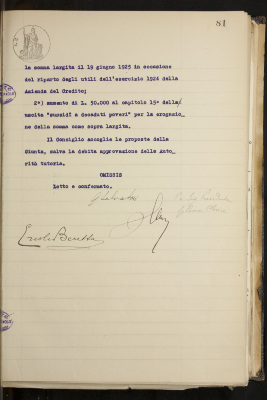 81
la somma largita il 19 giugno 1925 in occasione
del riparto degli utili dell'esercizio 1924 della
Azienda del Credito;
2°) aumento di L. 50.000 al capitolo 15° della
uscita "sussidi a decaduti poveri" per la erogazio
ne della somma come sopra largita.
Il Consiglio accoglie le proposte della
Giunta, salva la debita approvazione della Auto
rità tutoria.
OMISSIS
Letto e confermato.